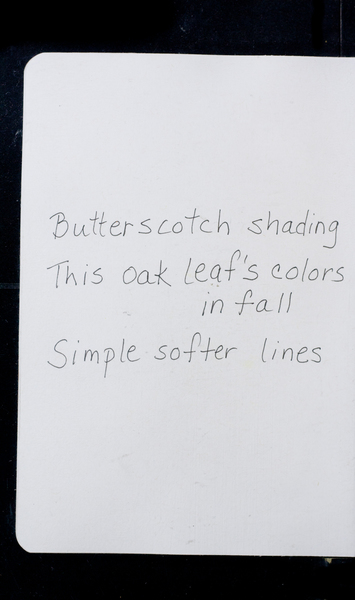 Butterscotch shading
This oak leaf's colors
in fall
Simple softer lines